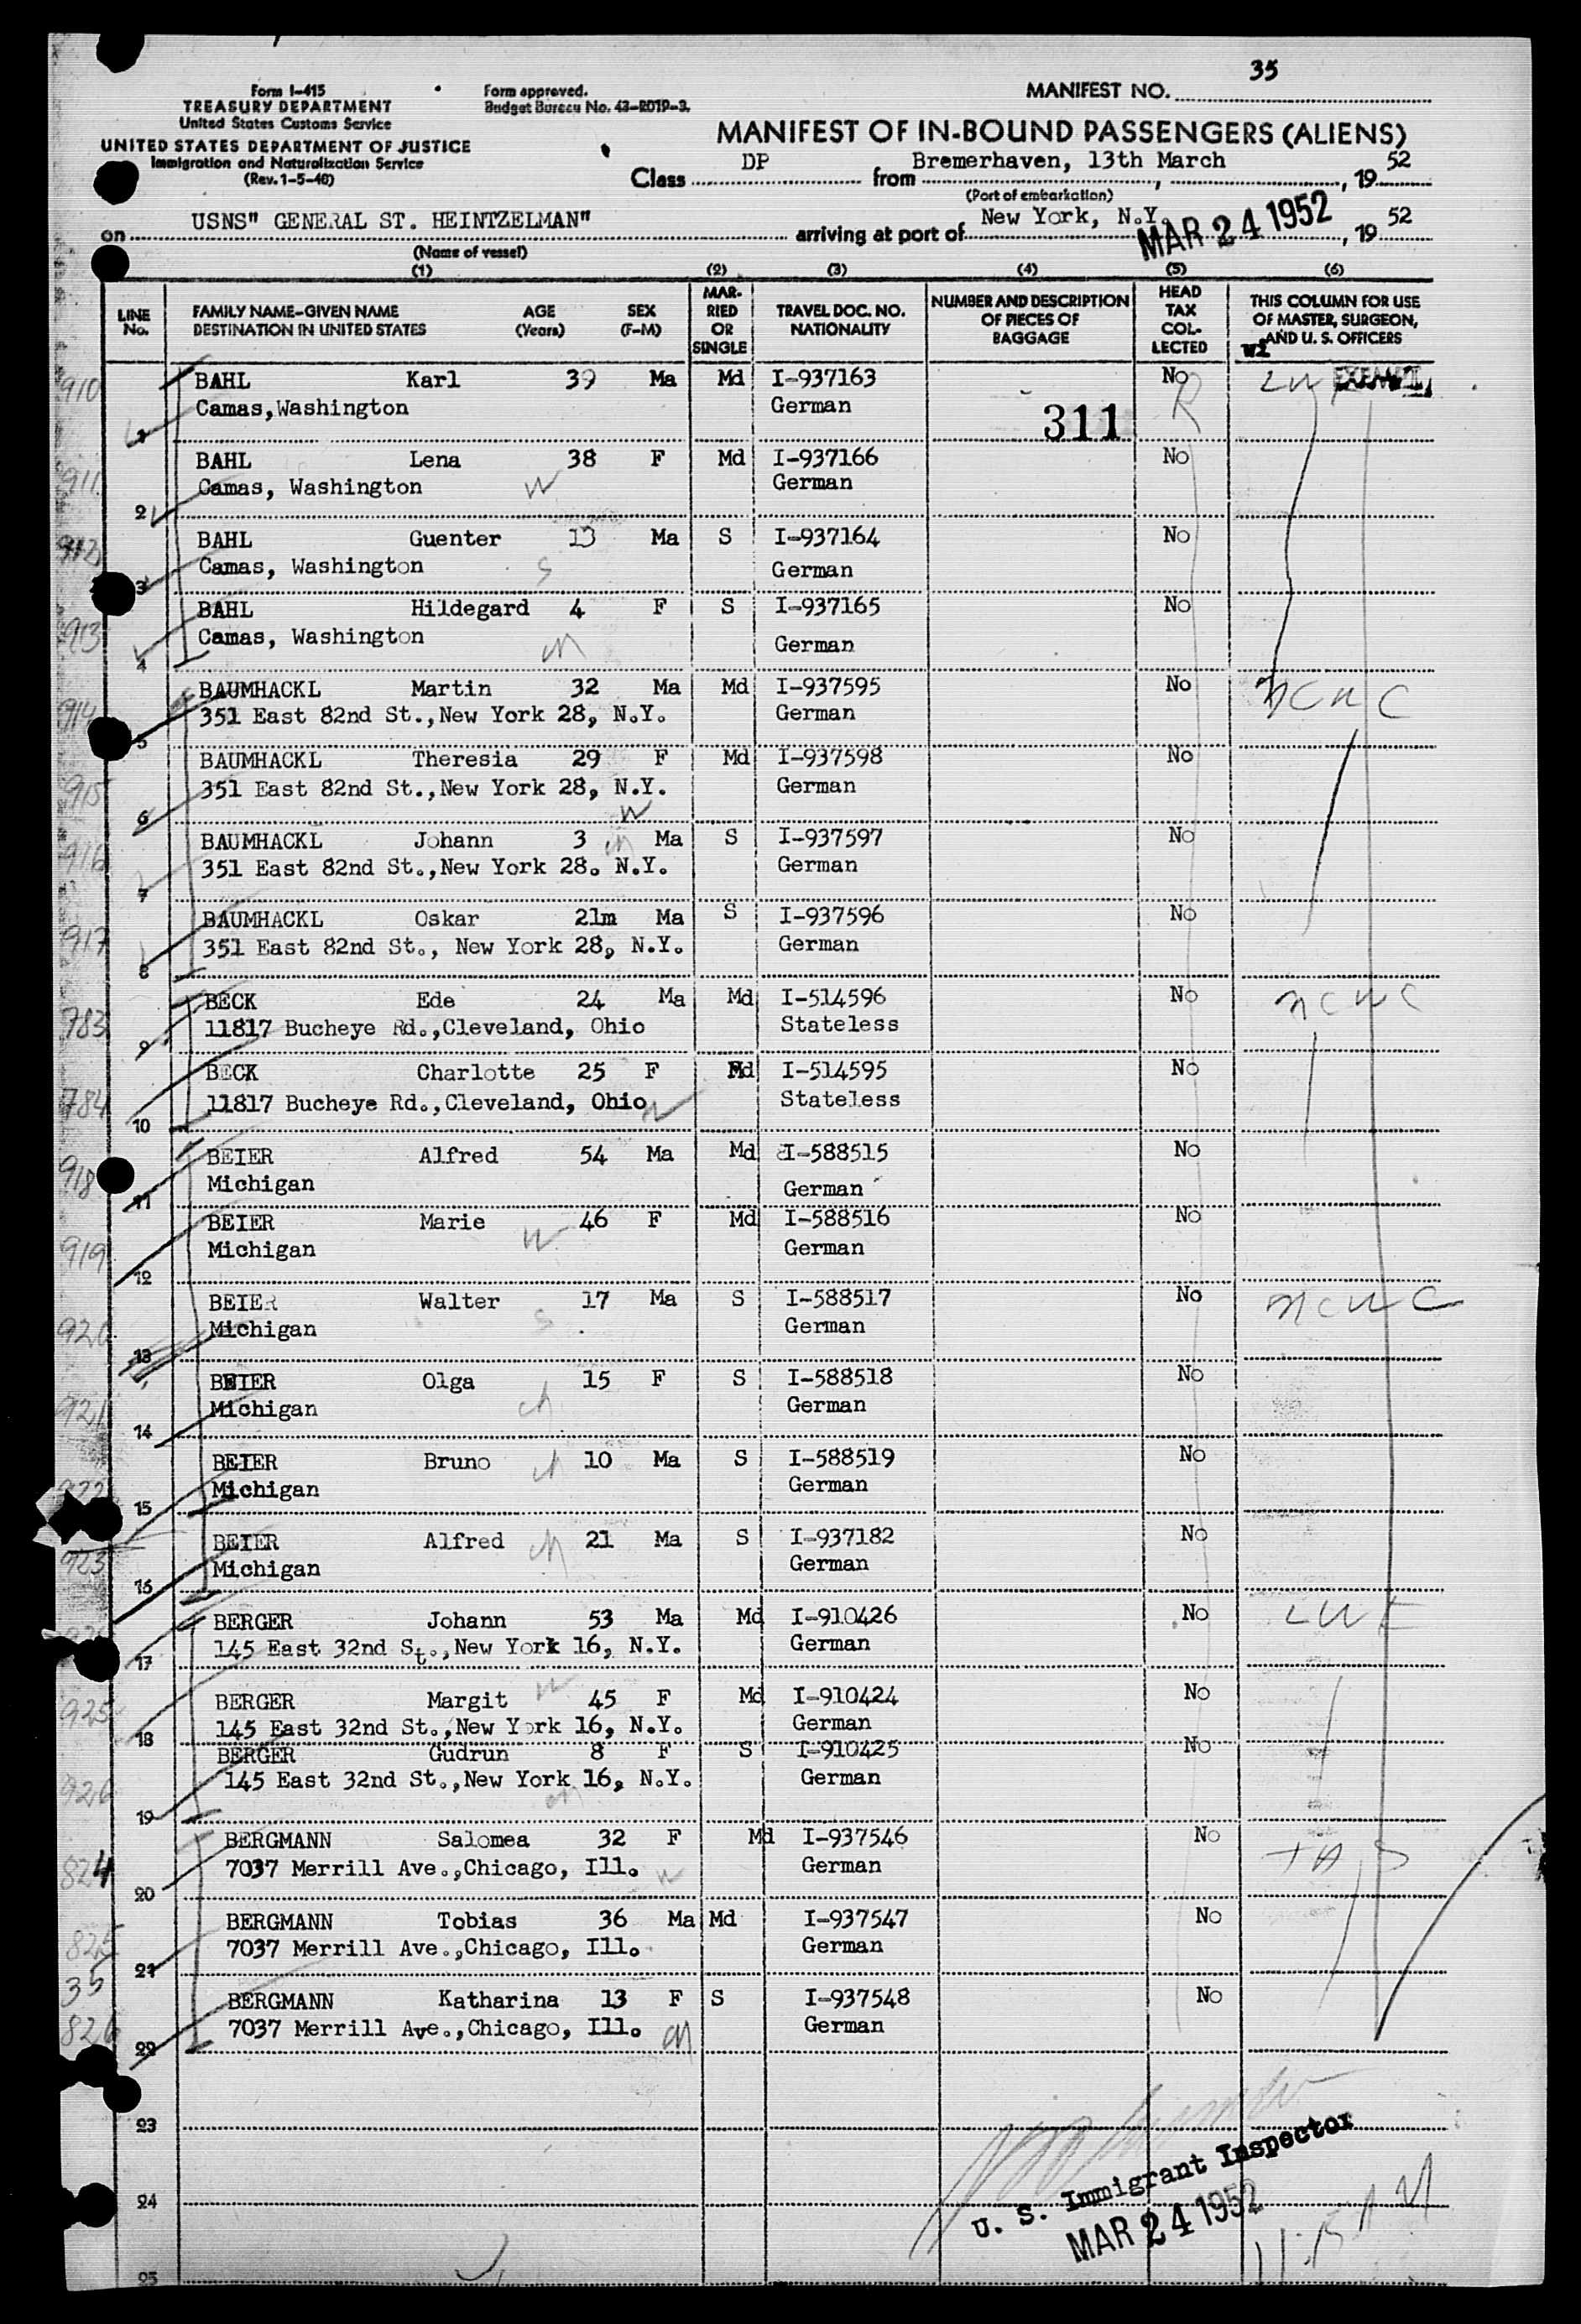 35
Form I-415
TREASURY DEPARTMENT
United States Customs Service
UNITED STATES DEPARTMENT OF JUSTICE
Immigration and Naturalization Service
(Rev. 1-5-48)
Form approved.
Budget Bureau No. 43-R019-3.
MANIFEST NO.
MANIFEST OF IN-BOUND PASSENGERS (ALIENS)
Class DP from Bremerhaven, 13th March, 19 52
(Port of embarkation)
on USNS" GENERAL ST. HEINTZELMAN" arriving at port of New York, N.Y. MAR 24 1952, 19 52
(Name of vessel)
(1) (2) (3) (4) (5) (6)
LINE No. FAMILY NAME-GIVEN NAME DESTINATION IN UNITED STATES AGE (Years) SEX (F-M) MARRIED OR SINGLE TRAVEL DOC. NO. NATIONALITY NUMBER AND DESCRIPTION OF PIECES OF BAGGAGE HEAD TAX COLLECTED THIS COLUMN FOR USE OF MASTER, SURGEON, AND U. S. OFFICERS
910 BAHL Karl 39 Ma Md I-937163 No
1 Camas,Washington German 311
911 BAHL Lena 38 F Md I-937166 No
2 Camas, Washington W German
912 BAHL Guenter 13 Ma S I-937164 No
3 Camas, Washington S German
913 BAHL Hildegard 4 F S I-937165 No
4 Camas, Washington German
914 BAUMHACKL Martin 32 Ma Md I-937595 No ncnc
5 351 East 82nd St.,New York 28, N.Y. German
915 BAUMHACKL Theresia 29 F Md I-937598 No
6 351 East 82nd St.,New York 28, N.Y. W German
916 BAUMHACKL Johann 3 Ma S I-937597 No
7 351 East 82nd St.,New York 28. N.Y. German
917 BAUMHACKL Oskar 21m Ma S I-937596 No
8 351 East 82nd St., New York 28, N.Y. German
783 BECK Ede 24 Ma Md I-514596 No ncnc
9 11817 Bucheye Rd.,Cleveland, Ohio Stateless
784 BECK Charlotte 25 F Md I-514595 No
10 11817 Bucheye Rd.,Cleveland, Ohio W Stateless
918 BEIER Alfred 54 Ma Md I-588515 No
11 Michigan German
919 BEIER Marie 46 F Md I-588516 No
12 Michigan W German
920 BEIER Walter 17 Ma S I-588517 No ncnc
13 Michigan S German
921 BEIER Olga 15 F S I-588518 No
14 Michigan ch German
922 BEIER Bruno 10 Ma S I-588519 No
15 Michigan ch German
923 BEIER Alfred 21 Ma S I-937182 No
16 Michigan ch German
BERGER Johann 53 Ma Md I-910426 No
17 145 East 32nd St.,New York 16, N.Y. German
925 BERGER Margit 45 F Md I-910424 No
18 145 East 32nd St.,New York 16, N.Y. German
926 BERGER Gudrun 8 F S I-910425 No
19 145 East 32nd St.,New York 16, N.Y. German
824 BERGMANN Salomea 32 F Md I-937546 No
20 7037 Merrill Ave.,Chicago, Ill. W German
825 BERGMANN Tobias 36 Ma Md I-937547 No
21 7037 Merrill Ave.,Chicago, Ill. German
35
826 BERGMANN Katharina 13 F S I-937548 No
22 7037 Merrill Ave.,Chicago, Ill. ch German
23
U. S. Immigrant Inspector
24
MAR 24 1952
25